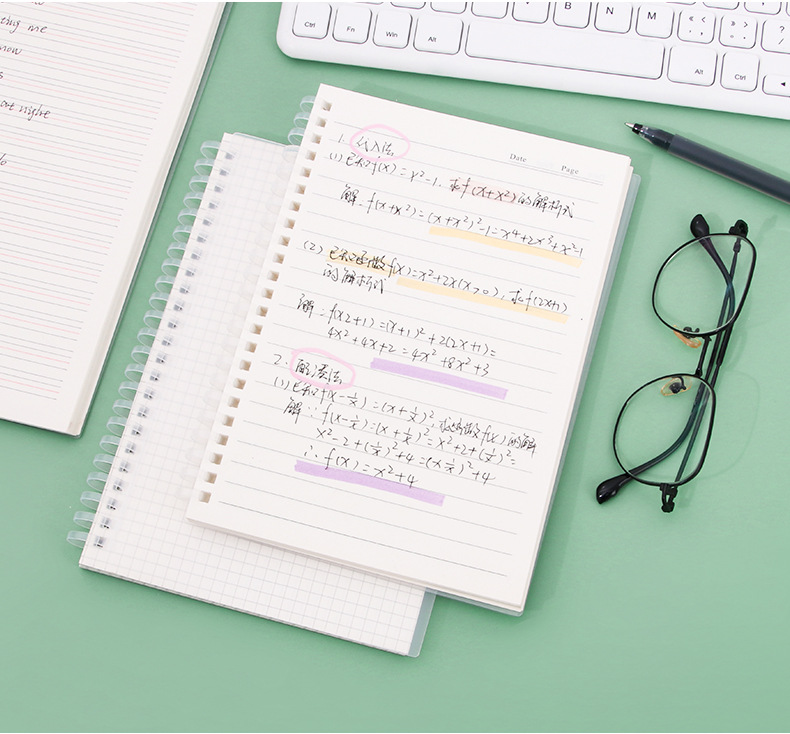 Ctrl Fn Win Alt B N M Alt Ctrl
ting me
now
at night
Date Page
1. 代入法
(1) 已知f(x)=x²-1. 求f(x+x²)的解析式
解. f(x+x²)=(x+x²)²-1=x⁴+2x³+x²-1
(2) 已知函数f(x)=x²+2x(x>0), 求f(2x+1)
的解析式
解: f(x2+1)=(x+1)²+2(2x+1)=
4x²+4x+2=4x²+8x²+3
2. 配凑法
(1) 已知f(x-1/x)=(x+1/x)², 求函数f(x)的解
解∵f(x-1/x)=(x+1/x)²=x²+2+(1/x)²=
x²-2+(1/x)²+4=(x 1/x)²+4
∴f(x)=x²+4